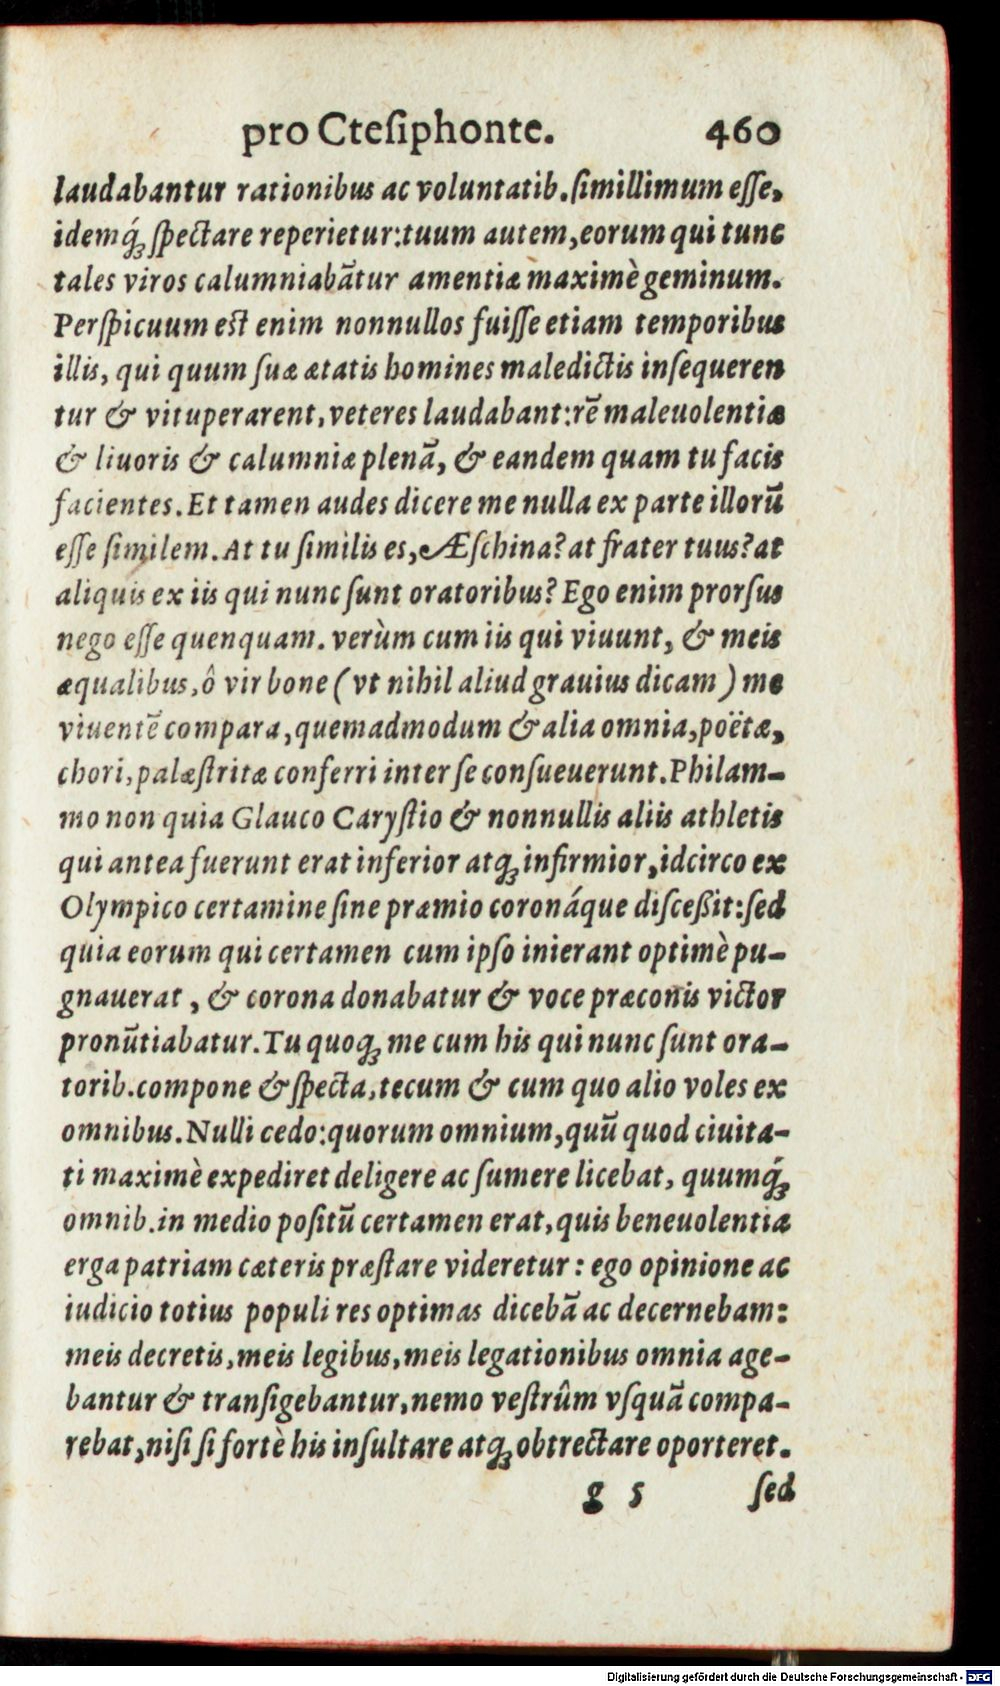 pro Cteſiphonte. 460
laudabantur rationibus ac voluntatib. ſimillimum eſſe,
idemq́ꝫ ſpectare reperietur: tuum autem, eorum qui tunc
tales viros calumniabãtur amentiæ maximè geminum.
Perſpicuum eſt enim nonnullos fuiſſe etiam temporibus
illis, qui quum ſuæ ætatis homines maledictis inſequeren
tur & vituperarent, veteres laudabant: rẽ maleuolentiæ
& liuoris & calumniæ plenã, & eandem quam tu facis
facientes. Et tamen audes dicere me nulla ex parte illorũ
eſſe ſimilem. At tu ſimilis es, Æſchina? at frater tuus? at
aliquis ex iis qui nunc ſunt oratoribus? Ego enim prorſus
nego eſſe quenquam. verùm cum iis qui viuunt, & meis
æqualibus, ô vir bone (vt nihil aliud grauius dicam) me
viuentẽ compara, quemadmodum & alia omnia, poëtæ,
chori, palæſtritæ conferri inter ſe conſueuerunt. Philam-
mo non quia Glauco Caryſtio & nonnullis aliis athletis
qui antea fuerunt erat inferior atqꝫ infirmior, idcirco ex
Olympico certamine ſine præmio coronáque diſceßit: ſed
quia eorum qui certamen cum ipſo inierant optimè pu-
gnauerat, & corona donabatur & voce præconis victor
pronũtiabatur. Tu quoqꝫ me cum his qui nunc ſunt ora-
torib. compone & ſpecta, tecum & cum quo alio voles ex
omnibus. Nulli cedo: quorum omnium, quũ quod ciuita-
ti maximè expediret deligere ac ſumere licebat, quumq́ꝫ
omnib. in medio poſitũ certamen erat, quis beneuolentia
erga patriam cæteris præſtare videretur: ego opinione ac
iudicio totius populi res optimas dicebã ac decernebam:
meis decretis, meis legibus, meis legationibus omnia age-
bantur & tranſigebantur, nemo veſtrûm vſquã compa-
rebat, niſi ſi fortè his inſultare atqꝫ obtrectare oporteret.
g 5 ſed
Digitalisierung gefördert durch die Deutsche Forschungsgemeinschaft - DFG